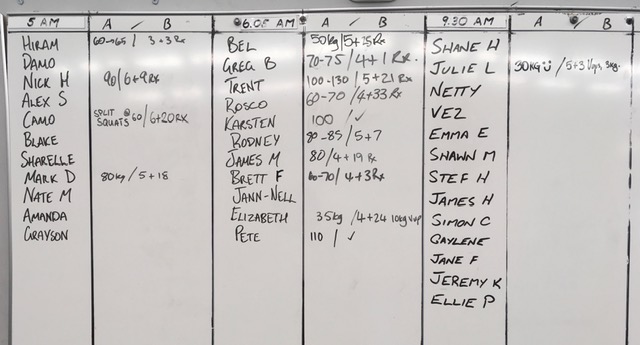 5 AM A / B 6.05 AM A / B 9.30 AM A / B
HIRAM 60→65 / 3+3Rx BEL 50kg / 5+15Rx SHANE H
DAMO GREG B 70-75 / 4+1 Rx JULIE L 30KG / 5+3
NICK H 90 / 6+9Rx TRENT 100-130 / 5+21 Rx NETTY
ALEX S ROSCO 60-70 / 4+33Rx VEZ
CAMO SPLIT SQUATS @60 / 6+20RX KARSTEN 100 / ✓ EMMA E
BLAKE RODNEY 80-85 / 5+7 SHAWN M
SHARELLE JAMES M 80 / 4+19 Rx STEF H
MARK D 80kg / 5+18 BRETT F 60-70 / 4+3Rx JAMES H
NATE M JANN-NELL SIMON C
AMANDA ELIZABETH 35kg / 4+24 10kg GAYLENE
GRAYSON PETE 110 / ✓ JANE F
JEREMY K
ELLIE P